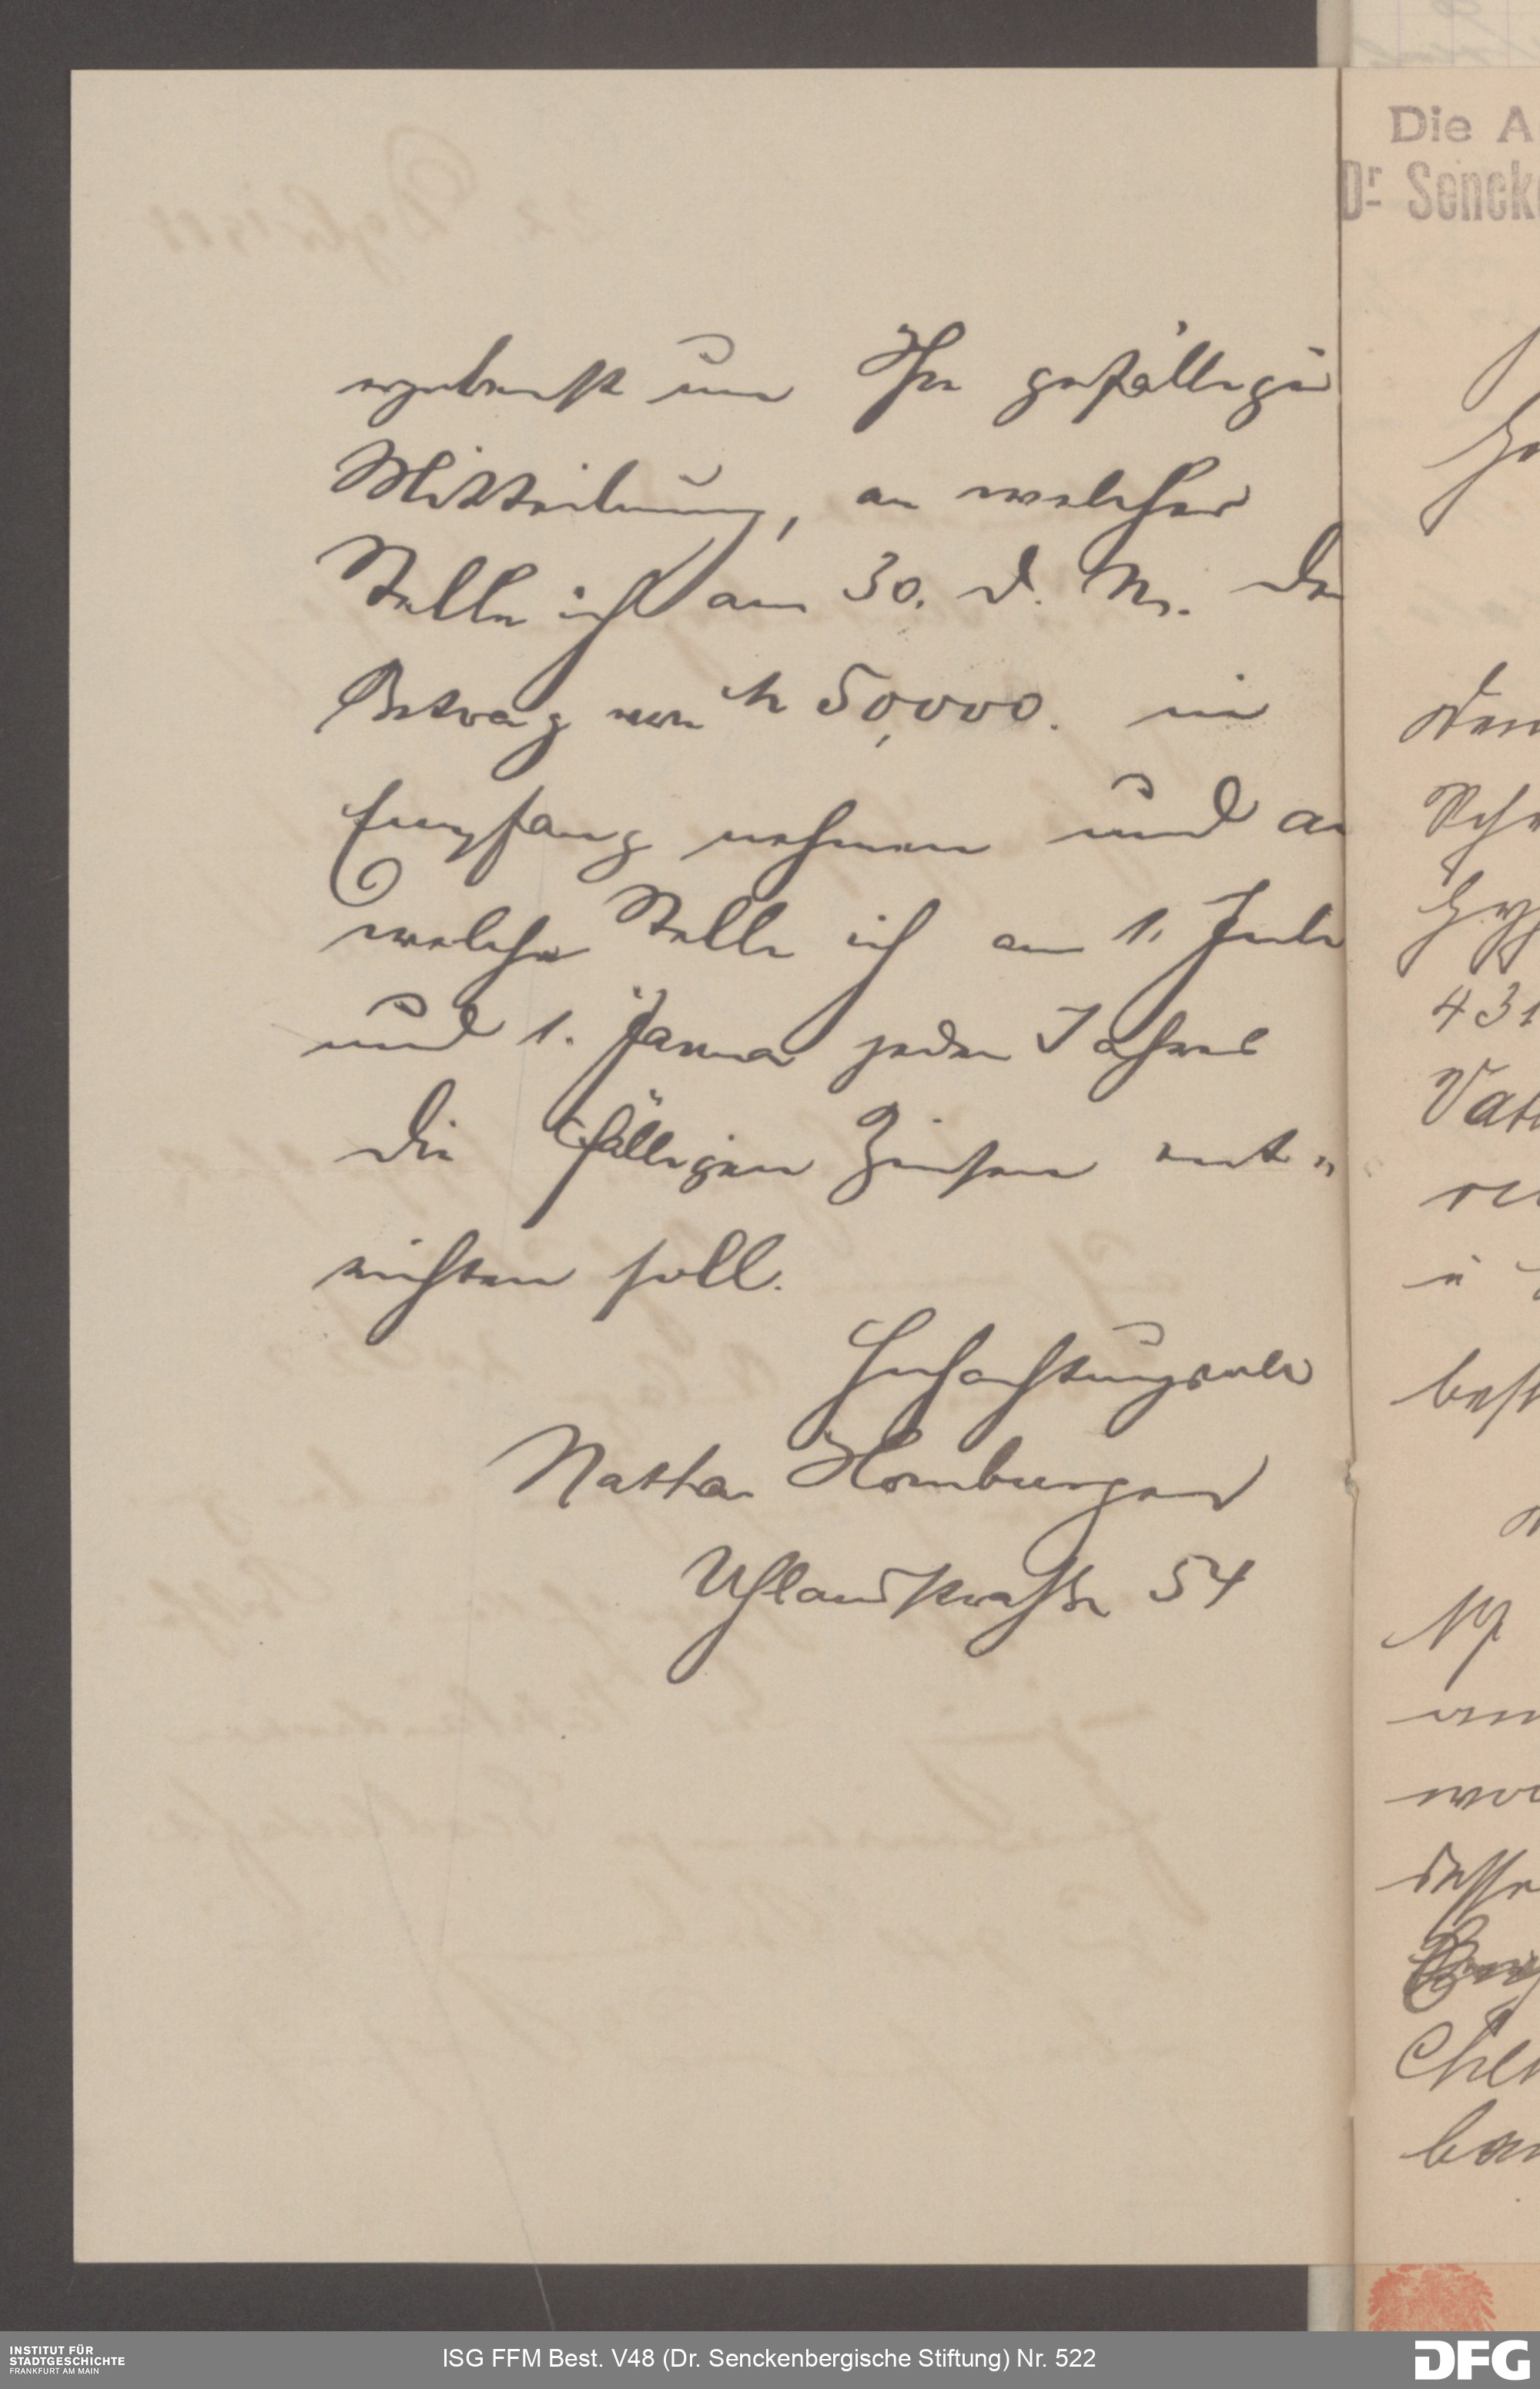 ergebenst um Ihre gefällige
Mitteilung, an welcher
Stelle ich am 30. d. M. den
Betrag von M 50,000. in
Empfang nehmen und an
welche Stelle ich am 1. Juli
und 1. Januar jeden Jahres
die fälligen Zinsen ent„
richten soll.
Hochachtungsvoll
Nathan Homburger
Uhlandstraße 54
Die A
Dr Sencke
431
INSTITUT FÜR
STADTGESCHICHTE
FRANKFURT AM MAIN
ISG FFM Best. V48 (Dr. Senckenbergische Stiftung) Nr. 522
DFG